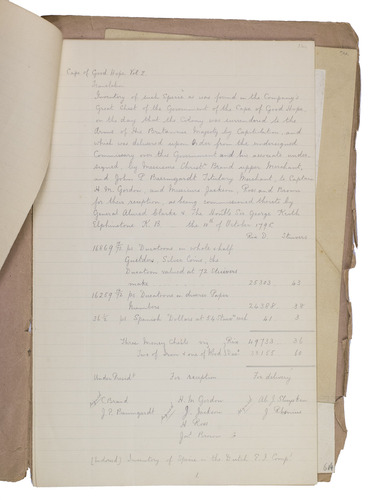 Cape of Good Hope, Vol. I
Translation
Inventory of such Specie as was found in the Company's
Great Chest of the Government of the Cape of Good Hope,
in the day that the Colony was surrendered to the
Arms of His Britannic Majesty by Capitulation, and
which was delivered upon Order from the undersigned
Commissary over this Government and his servants under-
signed, by Messieurs Christn Brand upper Merchant,
and John P. Baumgardt Titulary Merchant, to Captain
H. M. Gordon, and Messieurs Jackson, Ross and Brown
for their reception, as being commissioned thereto by
General Alured Clarke & The Honble Geo. George Keith
Elphinstone K. B. the 10th of October 1795
Rix D. Stuivers
16869 pc Ducatoons in whole & half
Guilders, Silver Coins, the
Ducatoon valued at 72 Stuivers
make 25303
16259 pc Ducatoons in diverse Paper
Numbers 24388
368 pc. Spanish Dollars at
Three Money Chests
Under Friend For reception For delivery
C. Brand H. M. Gordon
J. P. Baumgardt J. Jackson J. Rhenius
H. Ross
Jas Brown
(Indorsed) Inventory of Specie in the Dutch E. I. Comp'